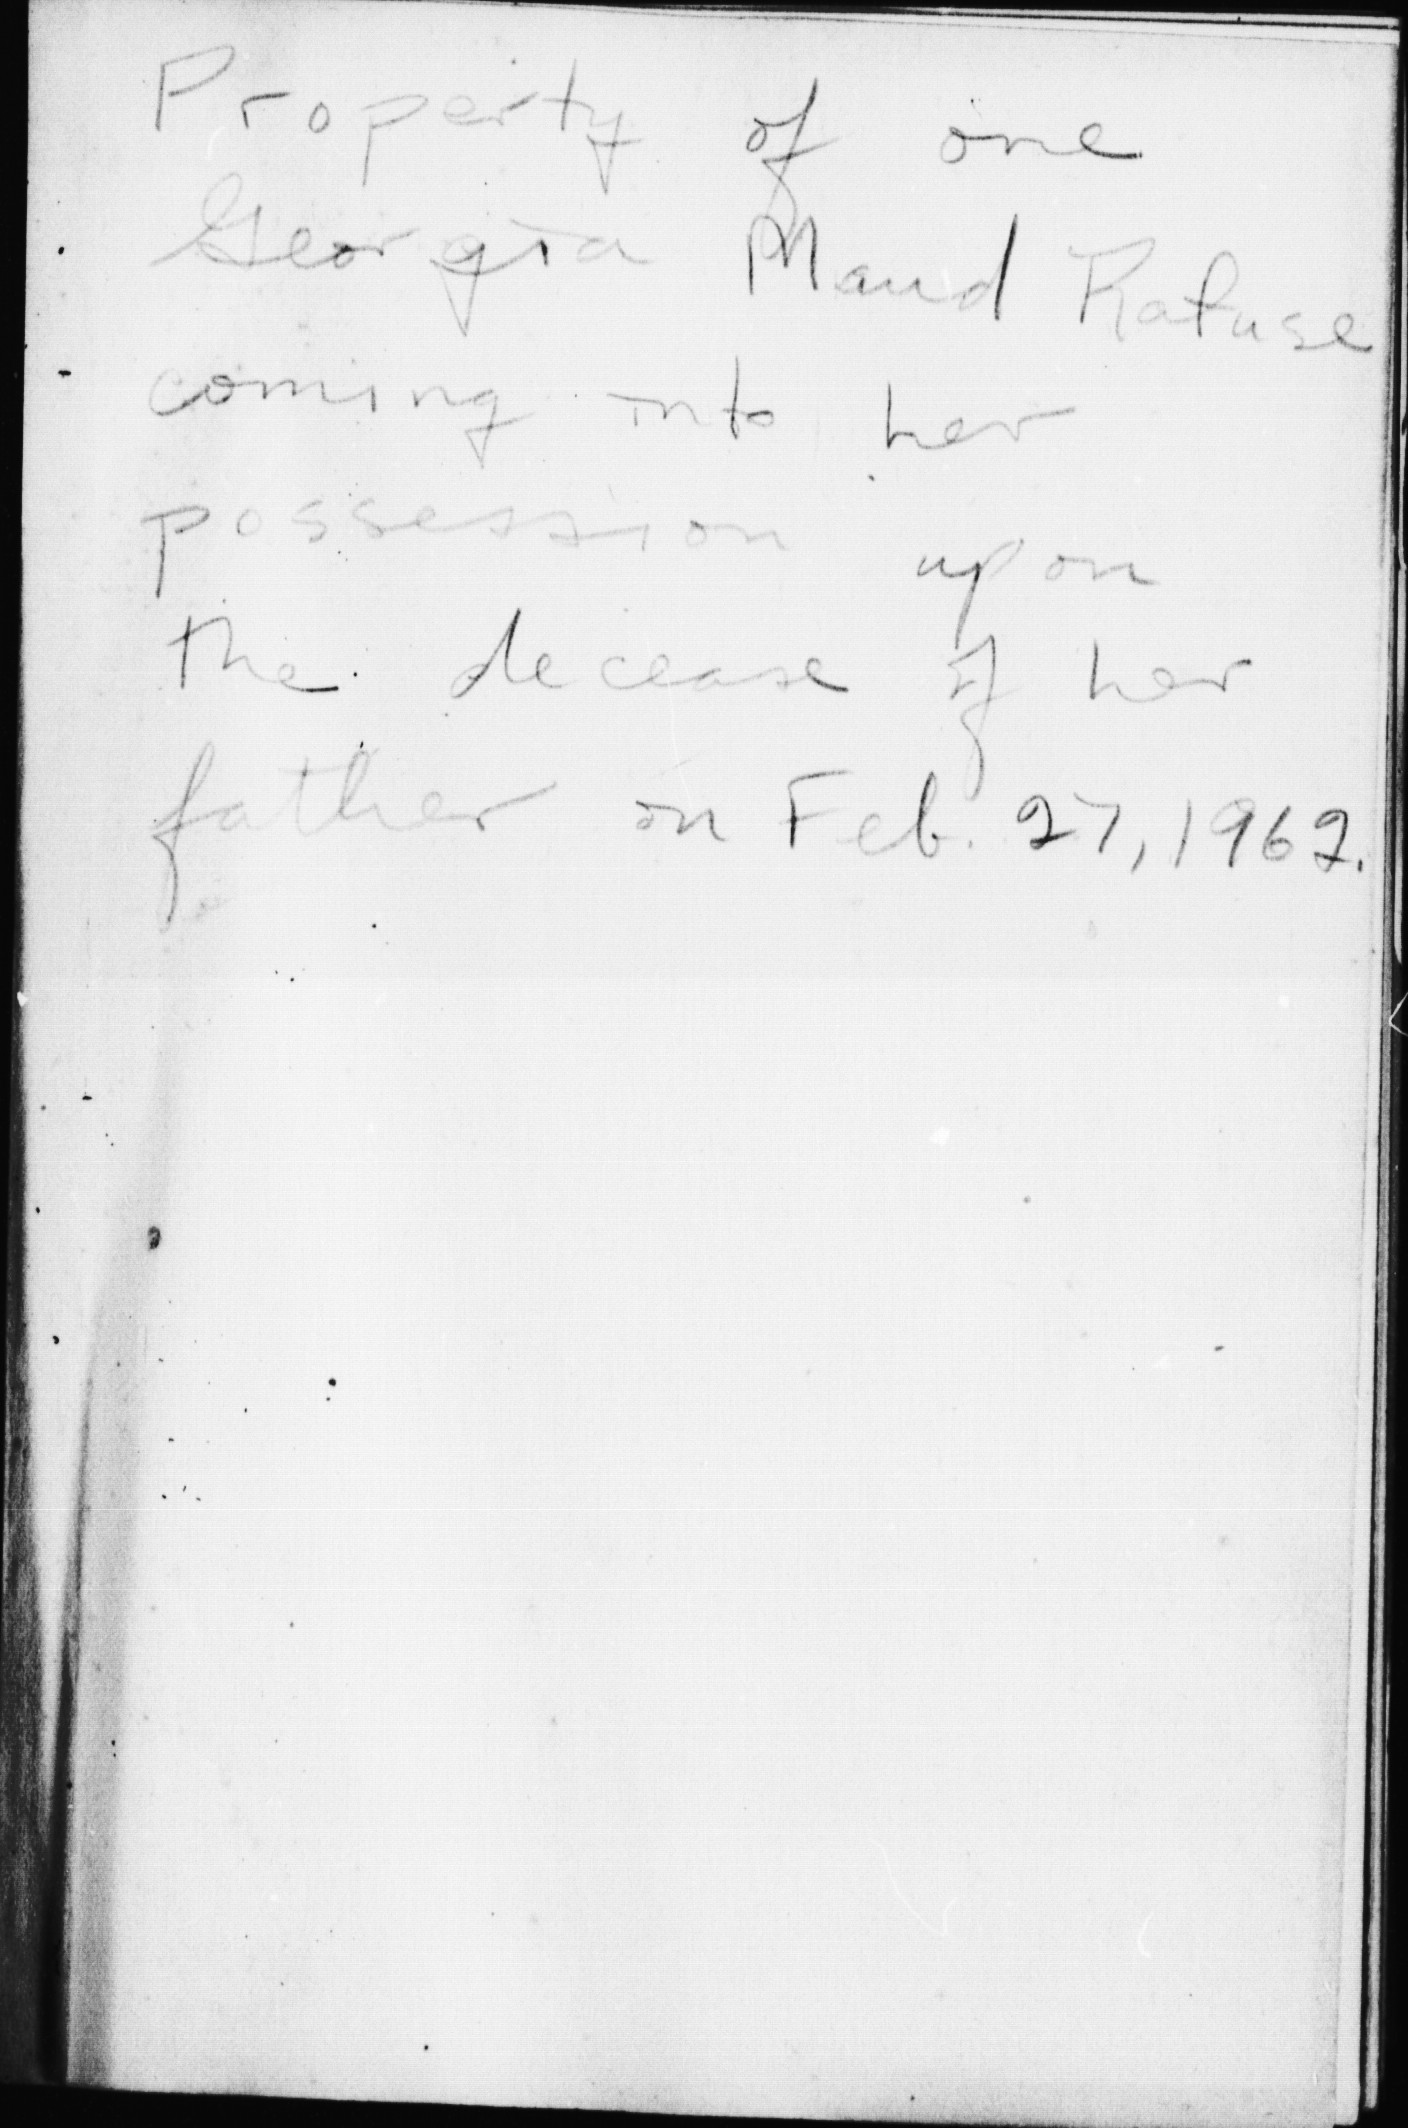 Property of one
Georgia Maud Rafuse
coming into her
possession upon
the decease of her
father on Feb. 27, 1962.